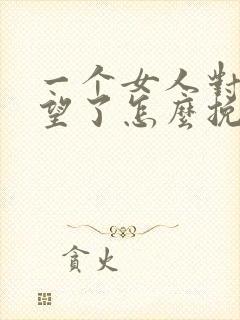 一个女人對
望了怎麽挽
貪火